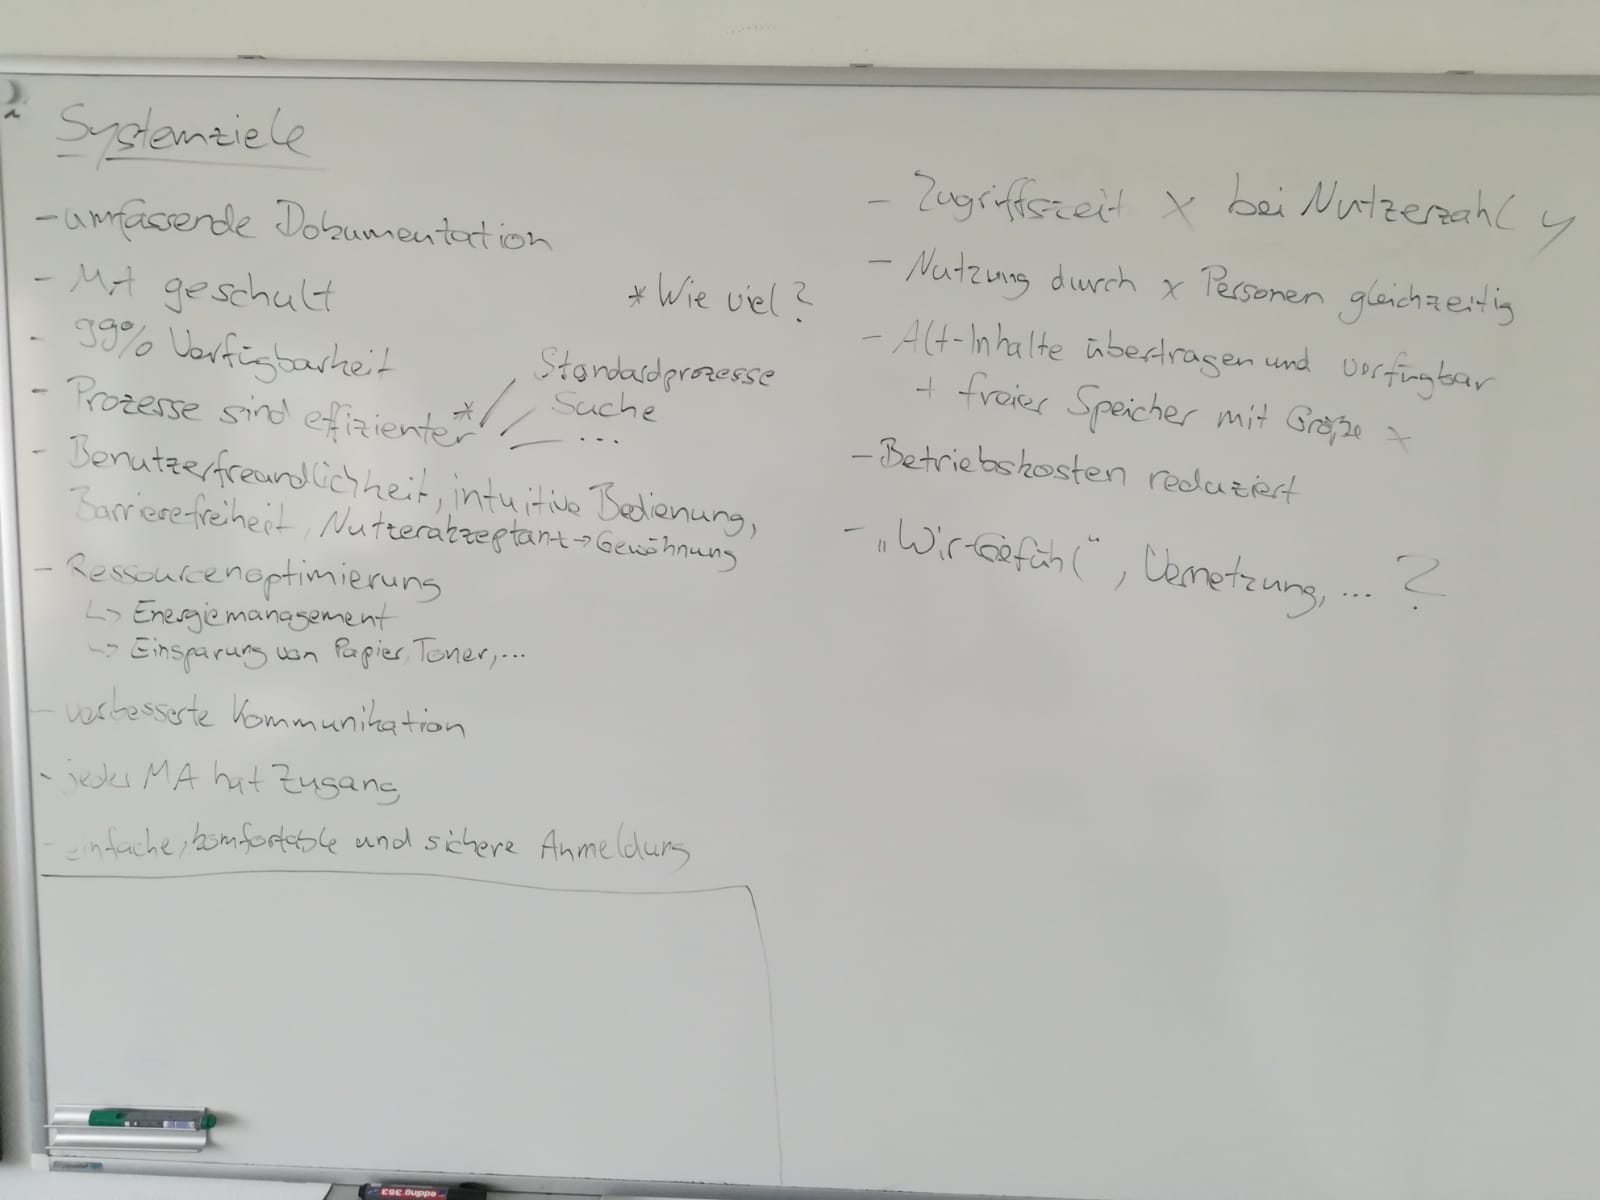 Systemziele
- umfassende Dokumentation
- MA geschult
* Wie viel?
- 99% Verfügbarkeit
- Prozesse sind effizienter *
Standardprozesse
Suche
...
- Benutzerfreundlichkeit, intuitive Bedienung,
Barrierefreiheit, Nutzerakzeptanz → Gewöhnung
- Ressourcenoptimierung
↳ Energiemanagement
↳ Einsparung von Papier, Toner, ...
- verbesserte Kommunikation
- jeder MA hat Zugang
- einfache, komfortable und sichere Anmeldung
- Zugriffszeit x bei Nutzerzahl y
- Nutzung durch x Personen gleichzeitig
- Alt-Inhalte übertragen und verfügbar
+ freier Speicher mit Größe x
- Betriebskosten reduziert
- „Wir-Gefühl“, Vernetzung, ... ?
edding 363